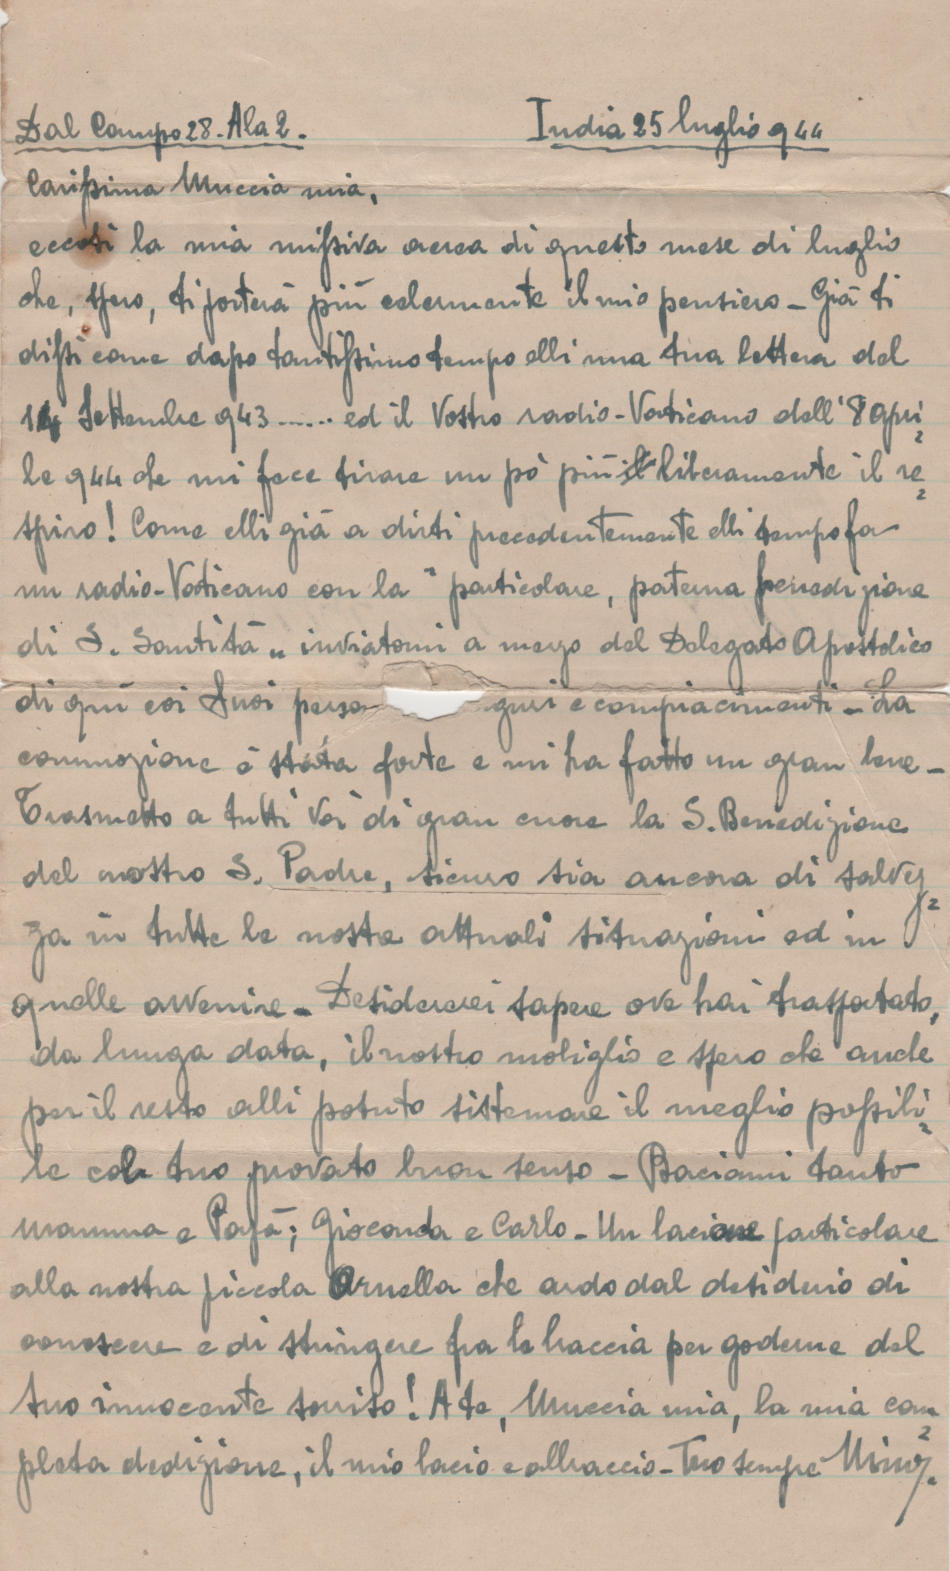 Dal Campo 28. Ala 2. India 25 luglio 944
Carissima Muccia mia,
eccoti la mia missiva aerea di questo mese di luglio
che, spero, ti porterà più celermente il mio pensiero - Già ti
dissi come dopo tantissimo tempo ebbi una tua lettera del
14 Settembre 943 ...... ed il Vostro radio-Vaticano dell' 8 apri
le 944 che mi fece tirare un pò più liberamente il re
spiro! Come ebbi già a dirti precedentemente ebbi tempo fa
un radio-Vaticano con la " particolare, paterna benedizione
di S. Santità „ inviatomi a mezzo del Delegato Apostolico
di quì coi Suoi perso guri e compiacimenti - La
commozione è stata forte e mi ha fatto un gran bene -
Trasmetto a tutti Voi di gran cuore la S. Benedizione
del nostro S. Padre, sicuro sia ancora di salvez
za in tutte le nostre attuali situazioni ed in
quelle avvenire - Desidererei sapere ove hai trasportato,
da lunga data, il nostro mobiglio e spero che anche
per il resto abbi potuto sistemare il meglio possibi
le col tuo provato buon senso - Baciami tanto
mamma e Papà; Gioconda e Carlo - Un bacione particolare
alla nostra piccola Ornella che ardo dal desiderio di
conoscere e di stringere fra le braccia per goderne del
suo innocente sorriso! A te, Muccia mia, la mia com
pleta dedizione, il mio bacio e abbraccio - Tuo sempre